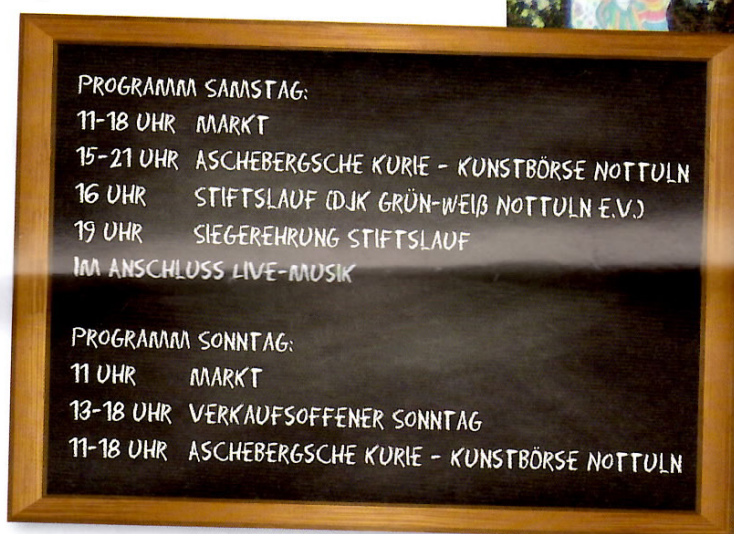 PROGRAMM SAMSTAG:
11-18 UHR MARKT
15-21 UHR ASCHEBERGSCHE KURIE - KUNSTBÖRSE NOTTULN
16 UHR STIFTSLAUF (DJK GRÜN-WEIß NOTTULN E.V.)
19 UHR SIEGEREHRUNG STIFTSLAUF
IM ANSCHLUSS LIVE-MUSIK
PROGRAMM SONNTAG:
11 UHR MARKT
13-18 UHR VERKAUFSOFFENER SONNTAG
11-18 UHR ASCHEBERGSCHE KURIE - KUNSTBÖRSE NOTTULN